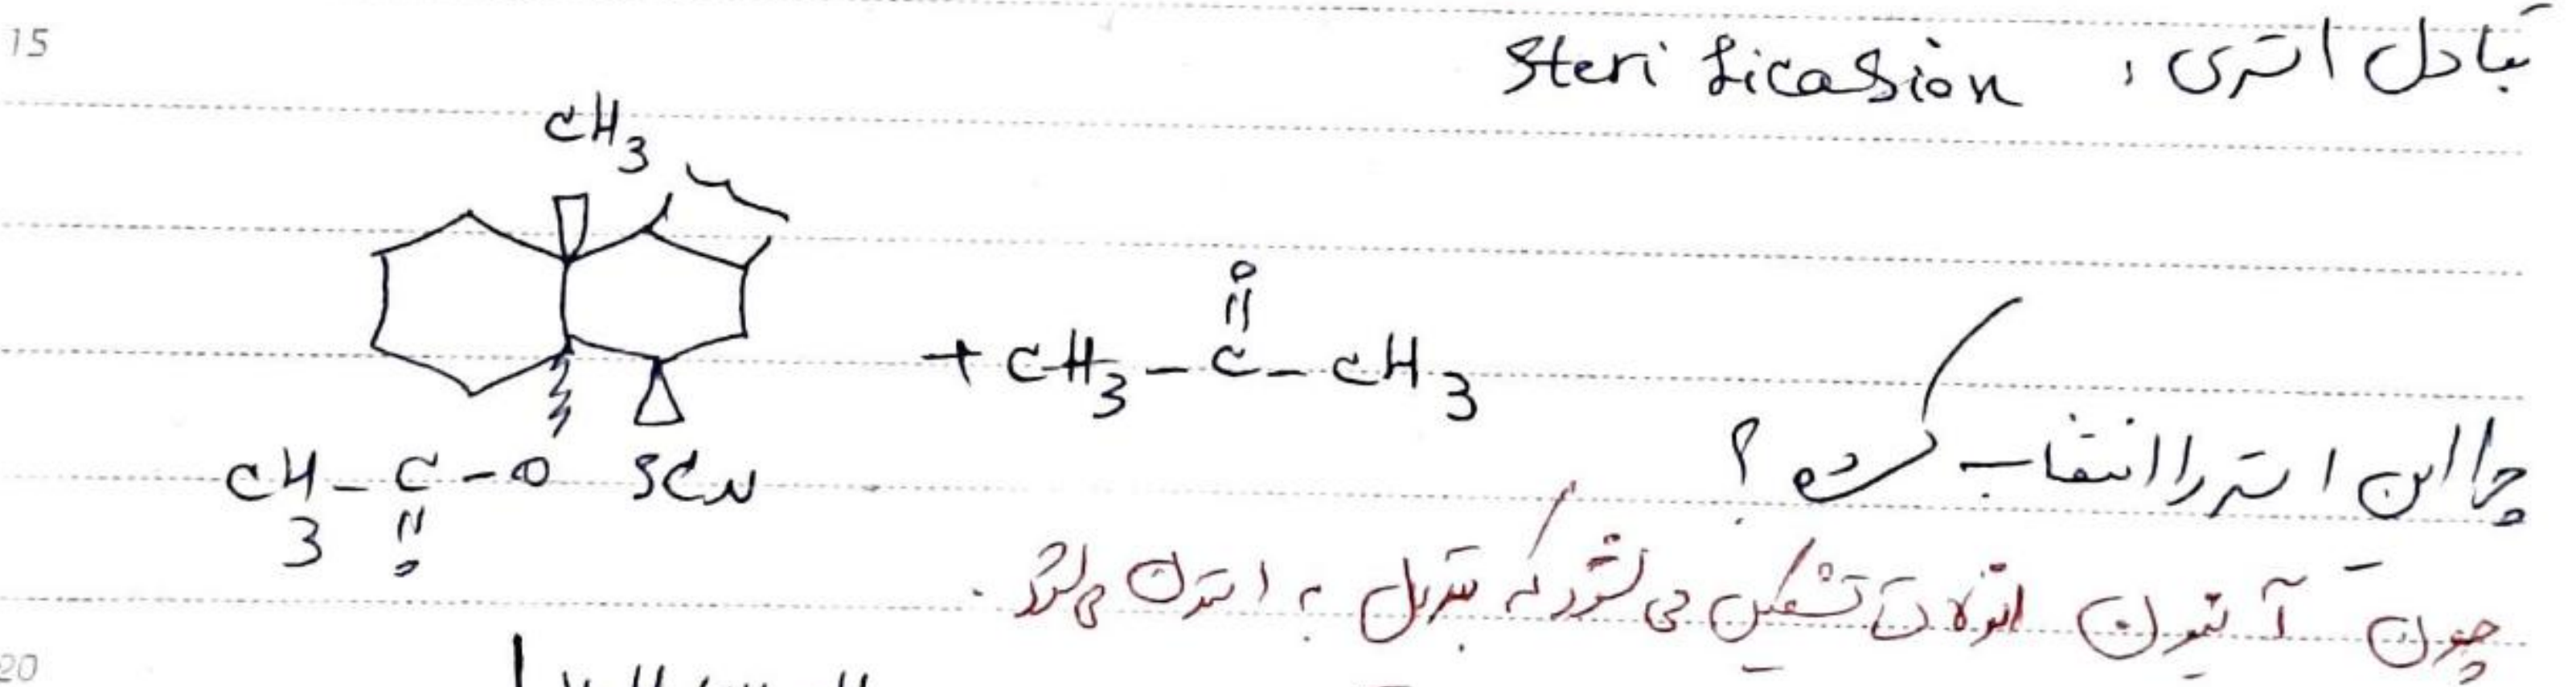 15
تبادل استری : Sterification
CH3
O
+ CH3 - C - CH3
CH3 - C - O SCN
O
چرا این استر را انتخاب کرده ؟
چون آنیون انولات تشکیل می‌شود که تبدیل به استن می‌شود.
20